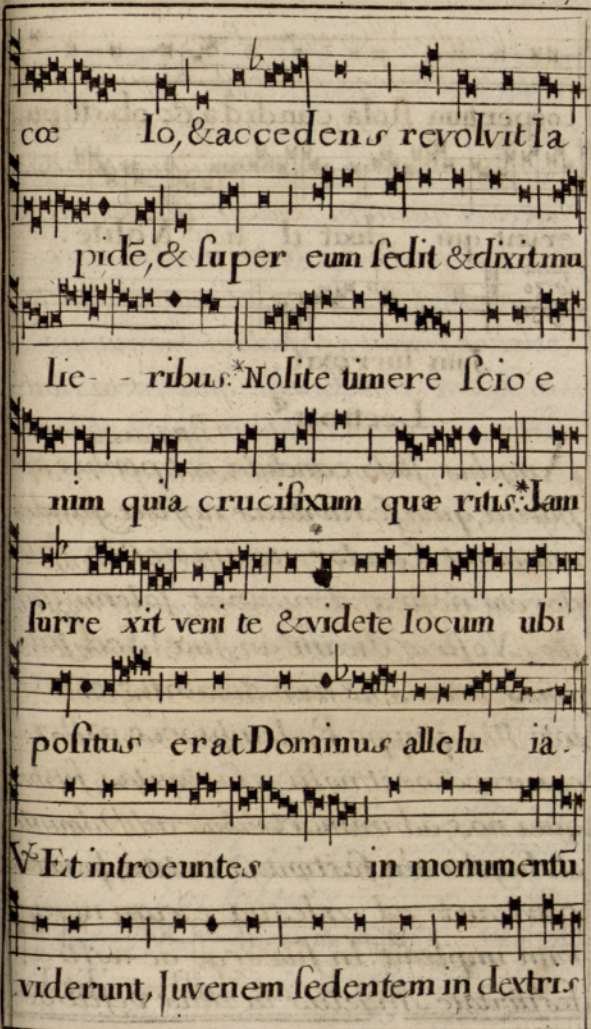 cœ lo, &accedens revolvit la
pidē, & ſuper eum ſedit &dixit mu
lie- - ribus.*Nolite timere ſcio e
nim quia crucifixum quæ ritis.*Jam
ſurre xit veni te &videte locum ubi
poſitus erat Dominus allelu ia.
℣ Et introeuntes in monumentū
viderunt, Juvenem ſedentem in dextris